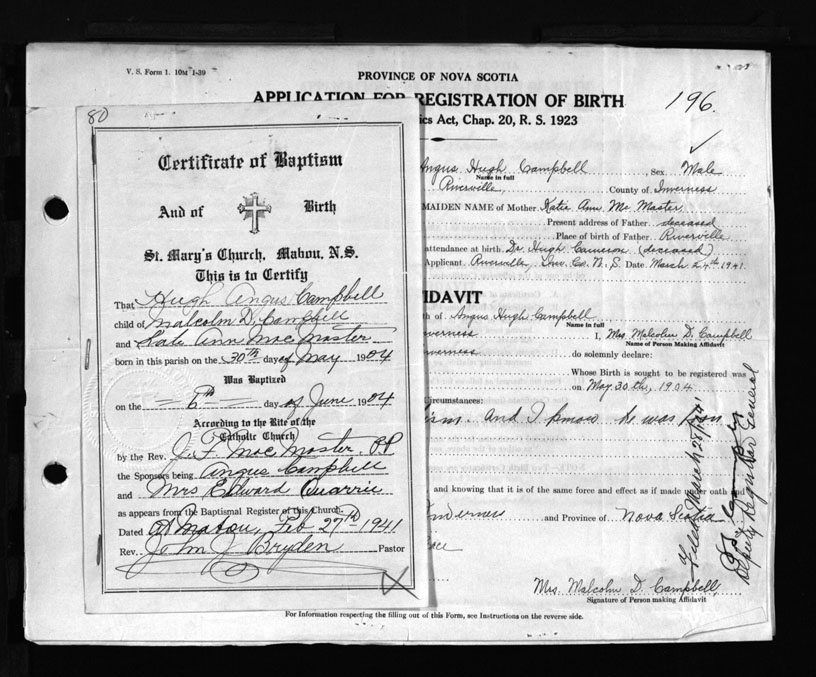 V. S. Form 1. 10M 1-39
PROVINCE OF NOVA SCOTIA
APPLICATION FOR REGISTRATION OF BIRTH
196.
ics Act, Chap. 20, R. S. 1923
80
Certificate of Baptism
And of Birth
St. Mary's Church, Mabou, N.S.
This is to Certify
That Hugh Angus Campbell
child of Malcolm D. Campbell
and Kate Ann MacMaster
born in this parish on the 30th day of May 1904
Was Baptized
on the 5th day of June 1904
According to the Rite of the
Catholic Church
by the Rev. J. F. MacMaster, P.P
the Sponsors being Angus Campbell
and Mrs Edward Quarrie
as appears from the Baptismal Register of this Church.
Dated at Mabou, Feb 27th 1941
Rev. John J Bryden Pastor
Angus Hugh Campbell, Sex Male
Name in full
Riverville, County of Inverness
MAIDEN NAME of Mother Katie Ann Mc Master
Present address of Father deceased
Place of birth of Father Riverville
attendance at birth Dr. Hugh Cameron (deceased)
Applicant Riverville, Inv. Co. N. S. Date March 24th 1941
IDAVIT
th of Angus Hugh Campbell
Name in full
verness I, Mrs Malcolm D. Campbell
Name of Person Making Affidavit
nverness do solemnly declare:
Whose Birth is sought to be registered was
on May 30th, 1904
Circumstances:
ism. And I know he was born
and knowing that it is of the same force and effect as if made under oath and
Inverness and Province of Nova Scotia
Mrs. Malcolm D. Campbell
Signature of Person making Affidavit
Filed March 28/1941
Deputy Registrar General
For Information respecting the filling out of this Form, see Instructions on the reverse side.